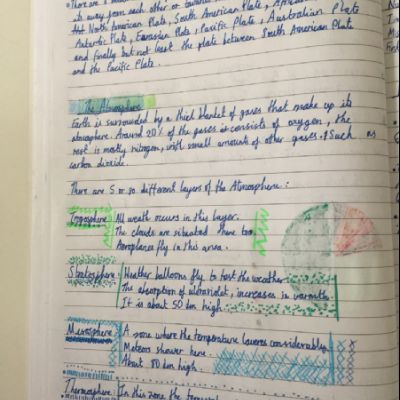 its away from each other or towards
North American Plate, South American Plate,
Antartic Plate, Eurasian Plate, Pacific Plate, Australian Plate
and finally but not least the plate between South American Plate
and the Pacific Plate.
The Atmosphere
Earth is surrounded by a thick blanket of gases that make up its
atmosphere. Around 20% of the gases consists of oxygen, the
rest is mostly nitrogen, with small amounts of other gases. Such as
carbon dioxide.
There are 5 or so different layers of the Atmosphere:
Troposphere All weath occurs in this layer.
The clouds are situated there too.
Aeroplanes fly in this area.
Stratosphere Weather balloons fly to test the weather
The absorption of ultraviolet, increases in warmth
It is about 50 km high
Mesosphere A zone where the temperature lowers considerably
Meteors shower here.
About 80 km high.
Thermosphere In this zone the